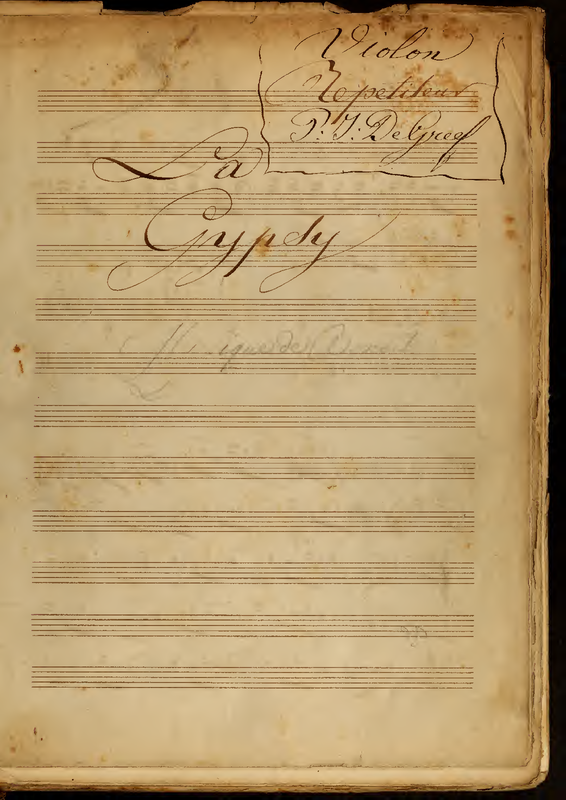 Violon
Repetiteur
P: J: De Greef
La
Gypsy
Musique de